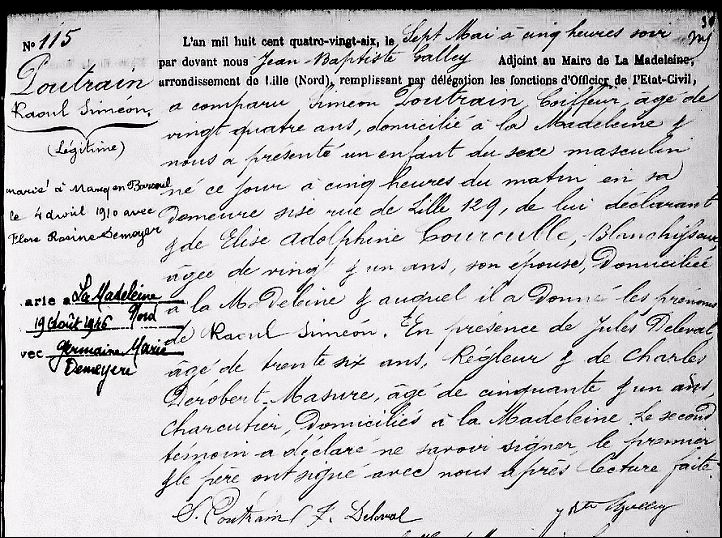 N° 115
Poutrain
Raoul Simeon.
(Légitime)
marié à Marcq en Baroeul
le 4 avril 1910 avec
Flore Rosine Demeyer
arié à La Madeleine
Nord
19 Août 1946
vec Germaine Marie
Demeyere
L'an mil huit cent quatre-vingt-six, le Sept Mai à cinq heures soir
par devant nous Jean-Baptiste Galley Adjoint au Maire de La Madeleine,
arrondissement de Lille (Nord), remplissant par délégation les fonctions d'Officier de l'Etat-Civil,
a comparu Simeon Poutrain, Coiffeur, âgé de
vingt quatre ans, domicilié à la Madeleine &
nous a présenté un enfant du sexe masculin
né ce jour à cinq heures du matin en sa
demeure sise rue de Lille 129, de lui déclarant
& de Elise Adolphine Courculle, Blanchisseuse,
âgée de vingt & un ans, son épouse, domiciliée
à la Madeleine & auquel il a donné les prénoms
de Raoul Simeon. En présence de Jules Deleval
âgé de trente six ans, Régleur & de Charles
Dérobert-Masure, âgé de cinquante & un ans,
Charcutier, domiciliés à la Madeleine. Le second
temoin a déclaré ne savoir signer, le premier
& le père ont signé avec nous après lecture faite.
S. Poutrain J. Deleval